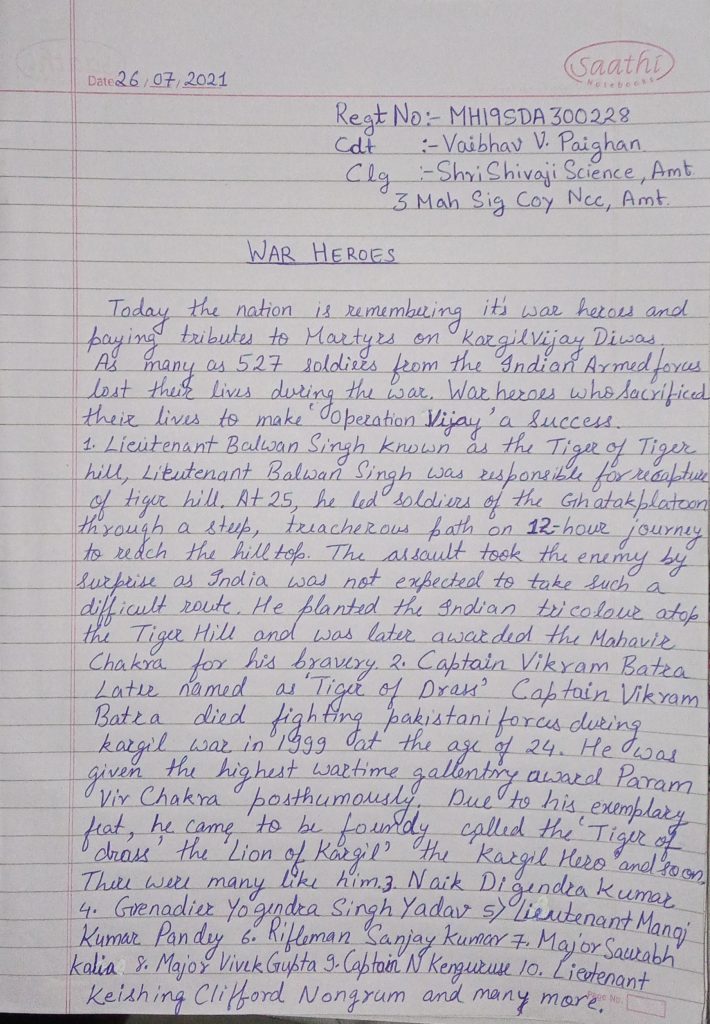 Saathi
Notebooks
Date 26/07/2021
Regt No:- MH19SDA300228
Cdt :- Vaibhav V. Paighan.
Clg :- Shri Shivaji Science, Amt.
3 Mah Sig Coy Ncc, Amt.
WAR HEROES
Today the nation is remembering it's war heroes and
paying tributes to Martyrs on Kargil Vijay Diwas.
As many as 527 soldiers from the Indian Armed forces
lost their lives during the war. War heroes who sacrificed
their lives to make 'Operation Vijay' a success.
1. Lieutenant Balwan Singh known as the Tiger of Tiger
hill, Lieutenant Balwan Singh was responsible for recapture
of tiger hill. At 25, he led soldiers of the Ghatak platoon
through a steep, treacherous path on 12-hour journey
to reach the hill top. The assault took the enemy by
surprise as India was not expected to take such a
difficult route. He planted the Indian tricolour atop
the Tiger Hill and was later awarded the Mahavir
Chakra for his bravery. 2. Captain Vikram Batra
Later named as 'Tiger of Drass' Captain Vikram
Batra died fighting pakistani forces during
kargil war in 1999 at the age of 24. He was
given the highest wartime gallentry award Param
Vir Chakra posthumously. Due to his exemplary
feat, he came to be foundy called the 'Tiger of
drass' the 'Lion of Kargil' the Kargil Hero and soon.
There were many like him. 3. Naik Digendra Kumar
4. Grenadier Yogendra Singh Yadav 5) Lieutenant Manoj
Kumar Pandey 6. Rifleman Sanjay Kumar 7. Major Saurabh
kalia 8. Major Vivek Gupta 9. Captain N Kenguruse 10. Lieutenant
Keishing Clifford Nongrum and many more.
Page No.